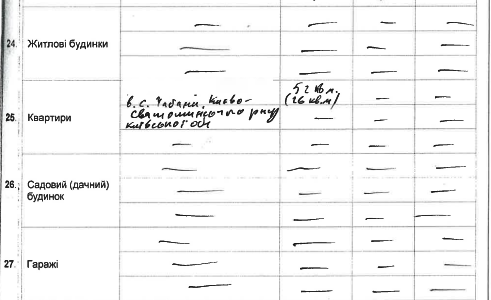 24. Житлові будинки — — — —
— — — —
— — — —
25. Квартири
в. С. Чабани, Києво-
Святошинського р-ну
Київської обл
52 кв.м.
(26 кв.м)
— —
— — — —
— — — —
26. Садовий (дачний)
будинок
— — — —
— — — —
— — — —
27. Гаражі
— — — —
— — — —
— — — —